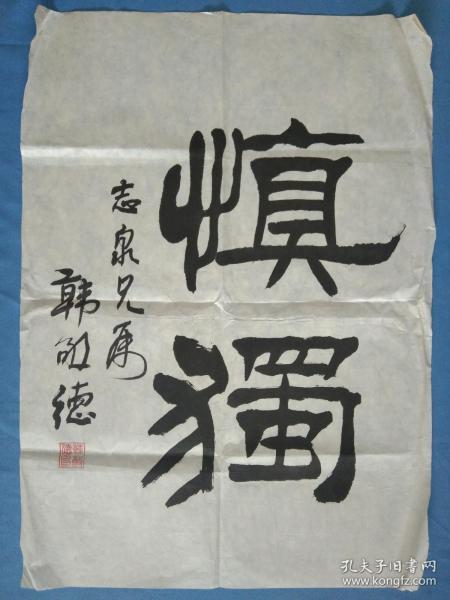 慎獨
志泉兄属
韩敬德
孔夫子旧书网
www.kongfz.com